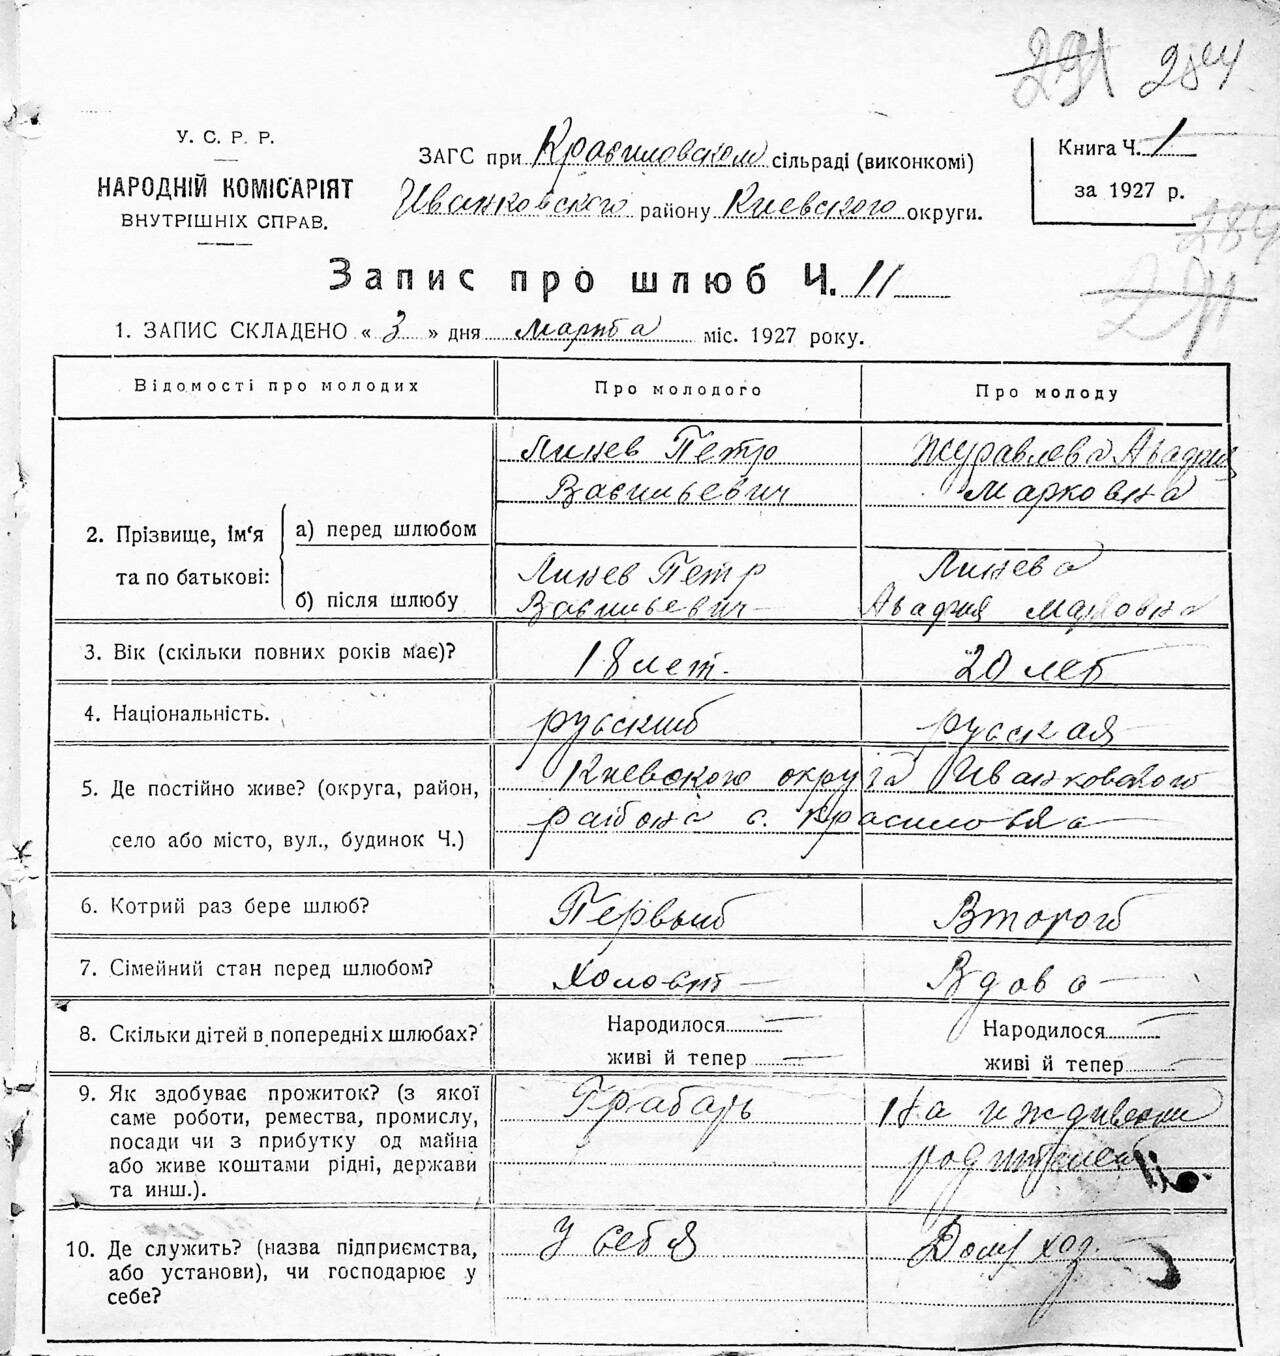 291 284
У. С. Р. Р.
НАРОДНІЙ КОМІСАРІЯТ
ВНУТРІШНІХ СПРАВ.
ЗАГС при Красиловском сільраді (виконкомі)
Иванковского району Киевского округи.
Книга Ч. 1
за 1927 р.
284
291
Запис про шлюб Ч. 11
1. ЗАПИС СКЛАДЕНО « 3 » дня марта міс. 1927 року.
Відомості про молодих Про молодого Про молоду
2. Прізвище, ім‘я та по батькові:
а) перед шлюбом
Линев Петр
Васильевич
Журавлева Агафия
Марковна
б) після шлюбу
Линев Петр
Васильевич
Линева
Агафия Марковна
3. Вік (скільки повних років має)? 18 лет. 20 лет
4. Національність. русский русская
5. Де постійно живе? (округа, район,
село або місто, вул., будинок Ч.)
Киевского округа Иванковского
района с. Красиловка
6. Котрий раз бере шлюб? Первый Второй
7. Сімейний стан перед шлюбом? Холост Вдова
8. Скільки дітей в попередніх шлюбах?
Народилося — Народилося —
живі й тепер — живі й тепер —
9. Як здобуває прожиток? (з якої
саме роботи, ремества, промислу,
посади чи з прибутку од майна
або живе коштами рідні, держави
та инш.).
Грабарь
На иждивении
родителей
10. Де служить? (назва підприємства,
або установи), чи господарює у
себе?
У себя
Дому хоз.